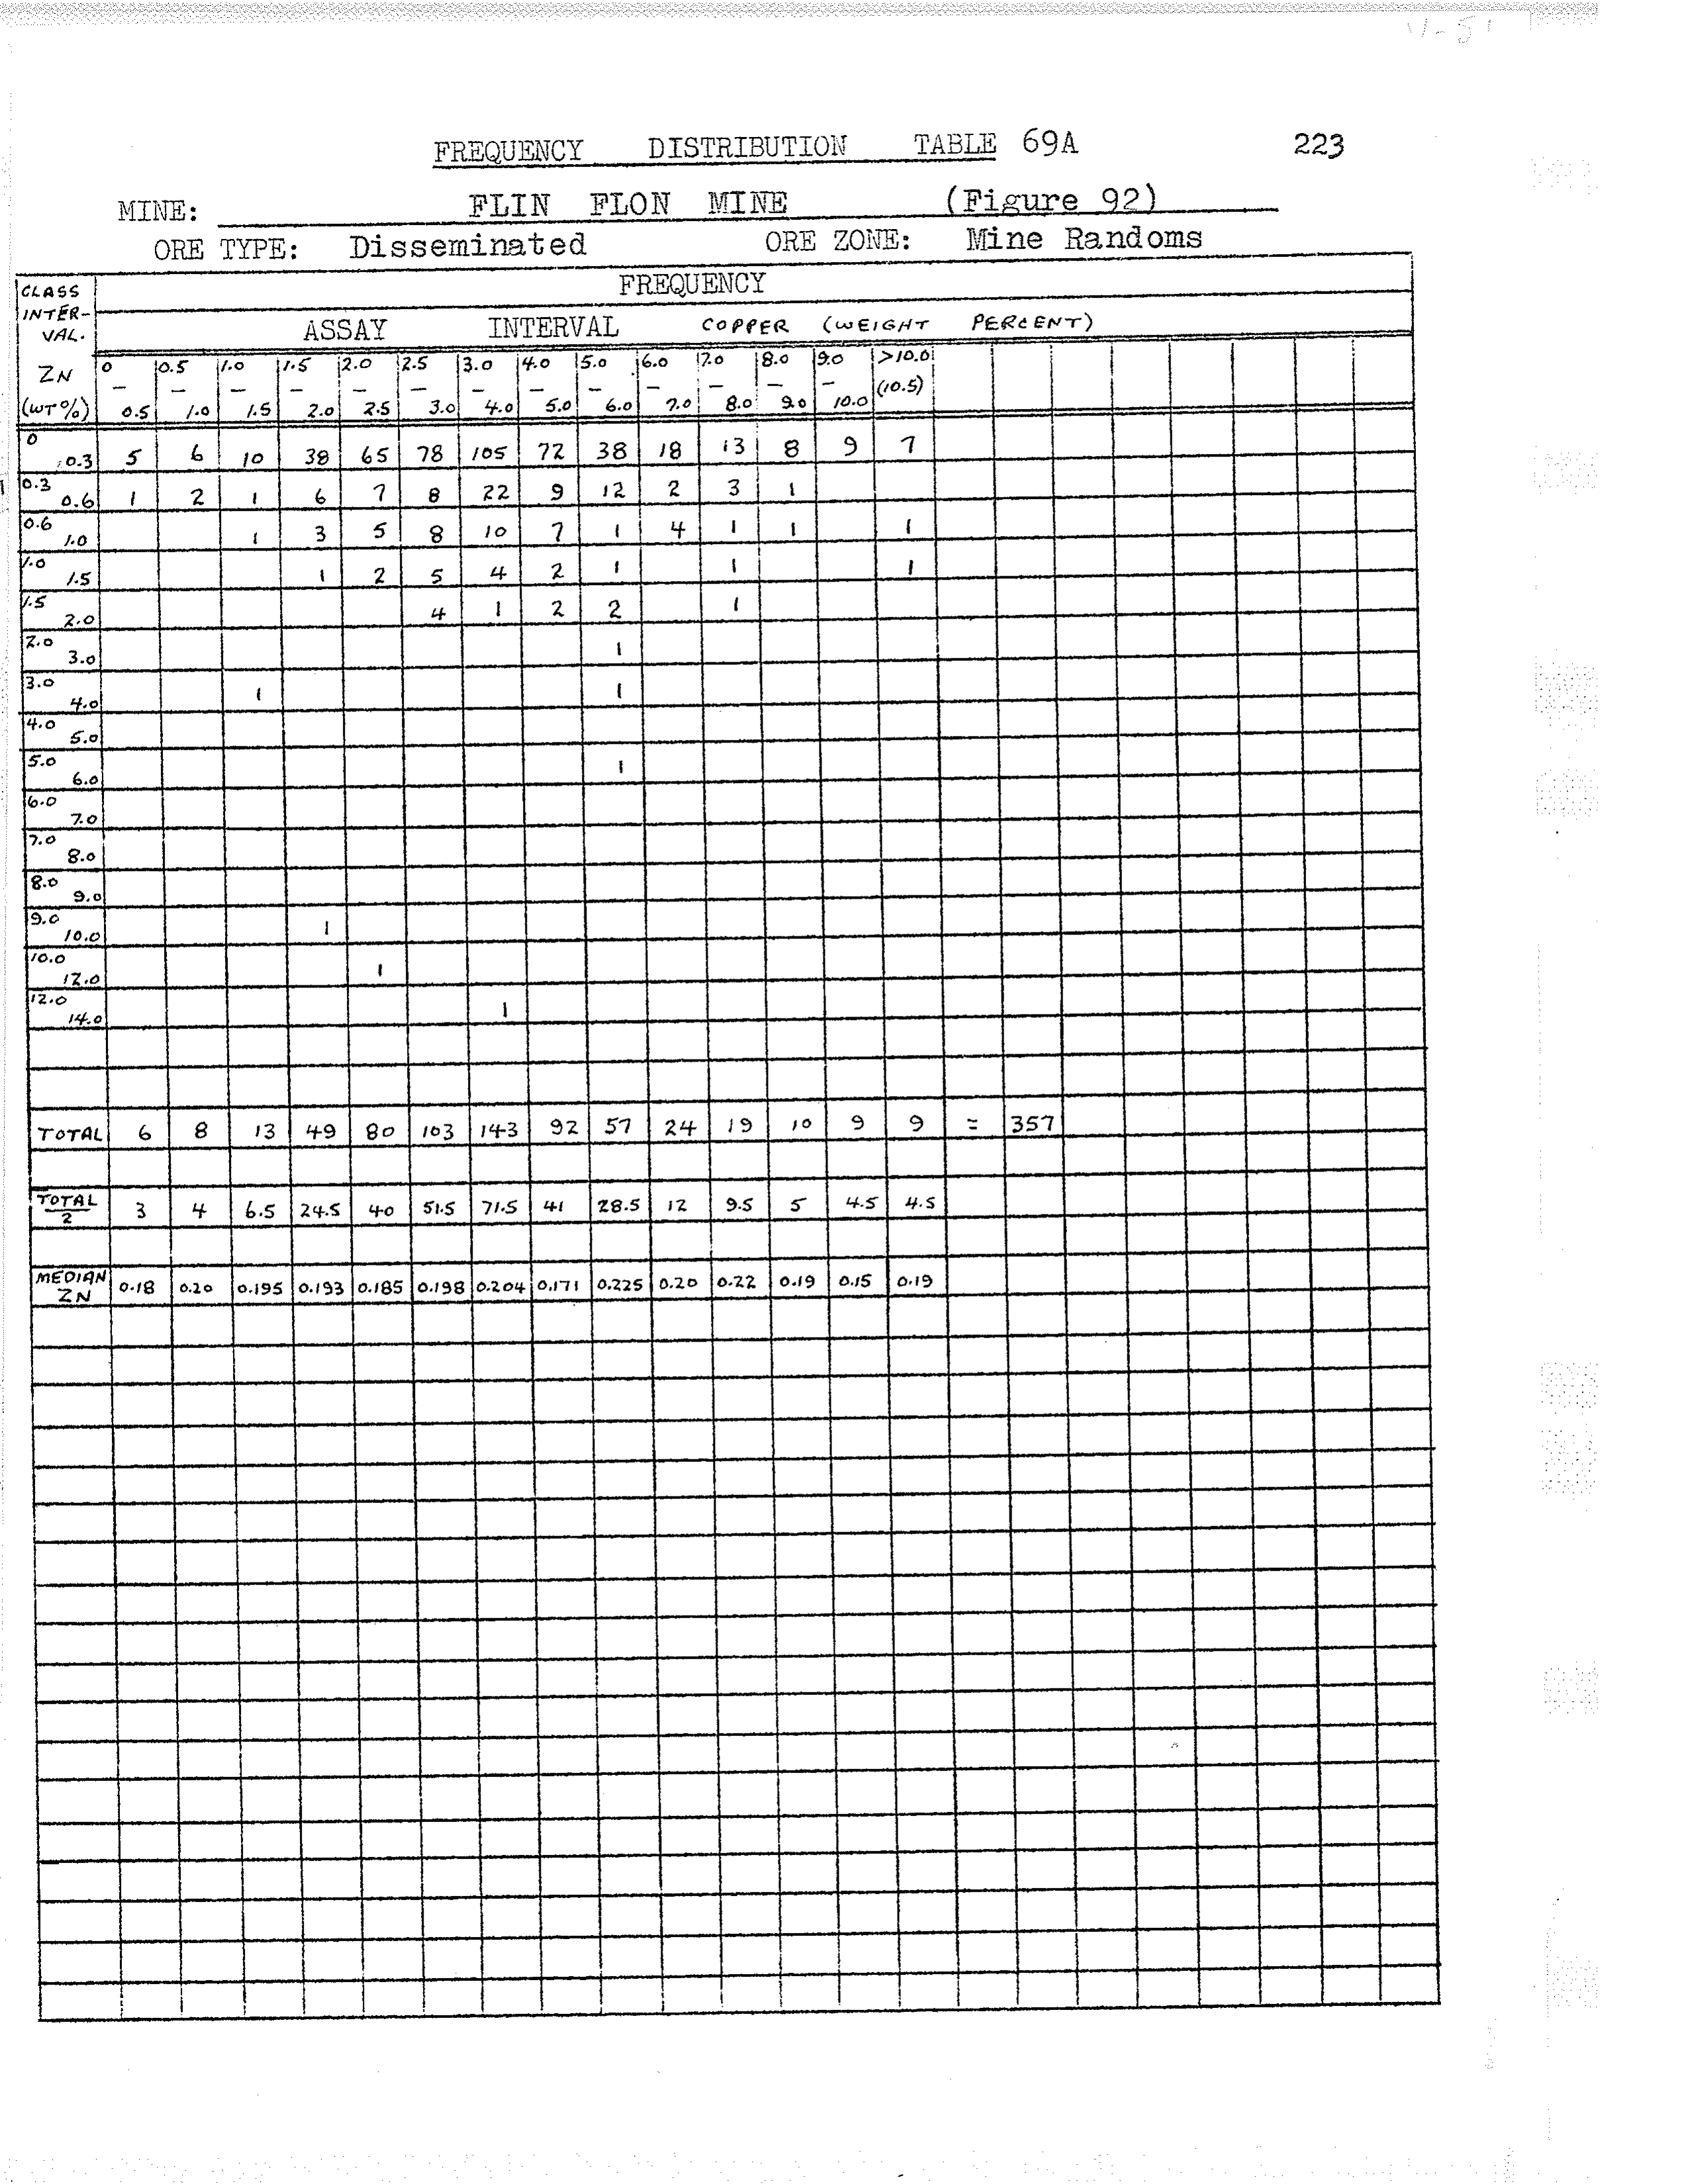 FREQUENCY DISTRIBUTION TABLE 69A 223
MINE: FLIN FLON MINE (Figure 92)
ORE TYPE: Disseminated ORE ZONE: Mine Randoms
CLASS INTER-VAL. FREQUENCY
ASSAY INTERVAL COPPER (WEIGHT PERCENT)
ZN 0 0.5 1.0 1.5 2.0 2.5 3.0 4.0 5.0 6.0 7.0 8.0 9.0 >10.0
– – – – – – – – – – – – – (10.5)
(WT%) 0.5 1.0 1.5 2.0 2.5 3.0 4.0 5.0 6.0 7.0 8.0 9.0 10.0
0 0.3 5 6 10 38 65 78 105 72 38 18 13 8 9 7
0.3 0.6 1 2 1 6 7 8 22 9 12 2 3 1
0.6 1.0 1 3 5 8 10 7 1 4 1 1 1
1.0 1.5 1 2 5 4 2 1 1 1
1.5 2.0 4 1 2 2 1
2.0 3.0 1
3.0 4.0 1 1
4.0 5.0
5.0 6.0 1
6.0 7.0
7.0 8.0
8.0 9.0
9.0 10.0 1
10.0 12.0 1
12.0 14.0 1
TOTAL 6 8 13 49 80 103 143 92 57 24 19 10 9 9 = 357
TOTAL/2 3 4 6.5 24.5 40 51.5 71.5 41 28.5 12 9.5 5 4.5 4.5
MEDIAN ZN 0.18 0.20 0.195 0.193 0.185 0.198 0.204 0.171 0.225 0.20 0.22 0.19 0.15 0.19